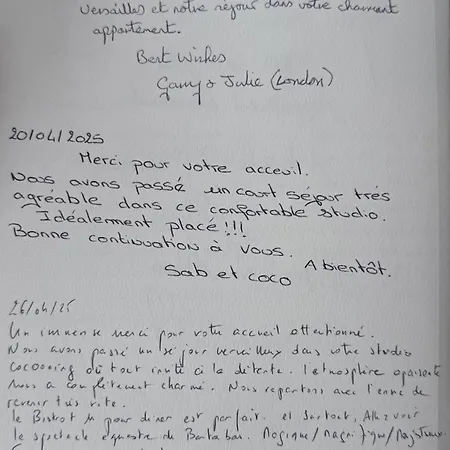 Versailles et notre séjour dans votre charmant
appartement.
Best Wishes
Gary & Julie (London)
20/04/2025
Merci pour votre acceuil.
Nous avons passé un court séjour très
agréable dans ce confortable studio.
Idéalement placé !!!
Bonne continuation à vous.
A bientôt.
Sab et coco
26/04/25
Un immense merci pour votre accueil attentionné.
Nous avons passé un séjour merveilleux dans votre studio
cocooning où tout invite à la détente. l'atmosphère apaisante
nous a complètement charmé. Nous repartons avec l'envie de
revenir très vite.
le Bistrot pour diner est parfait. et surtout, Allez voir
le spectacle équestre de Bartabas. Magique/magnifique/